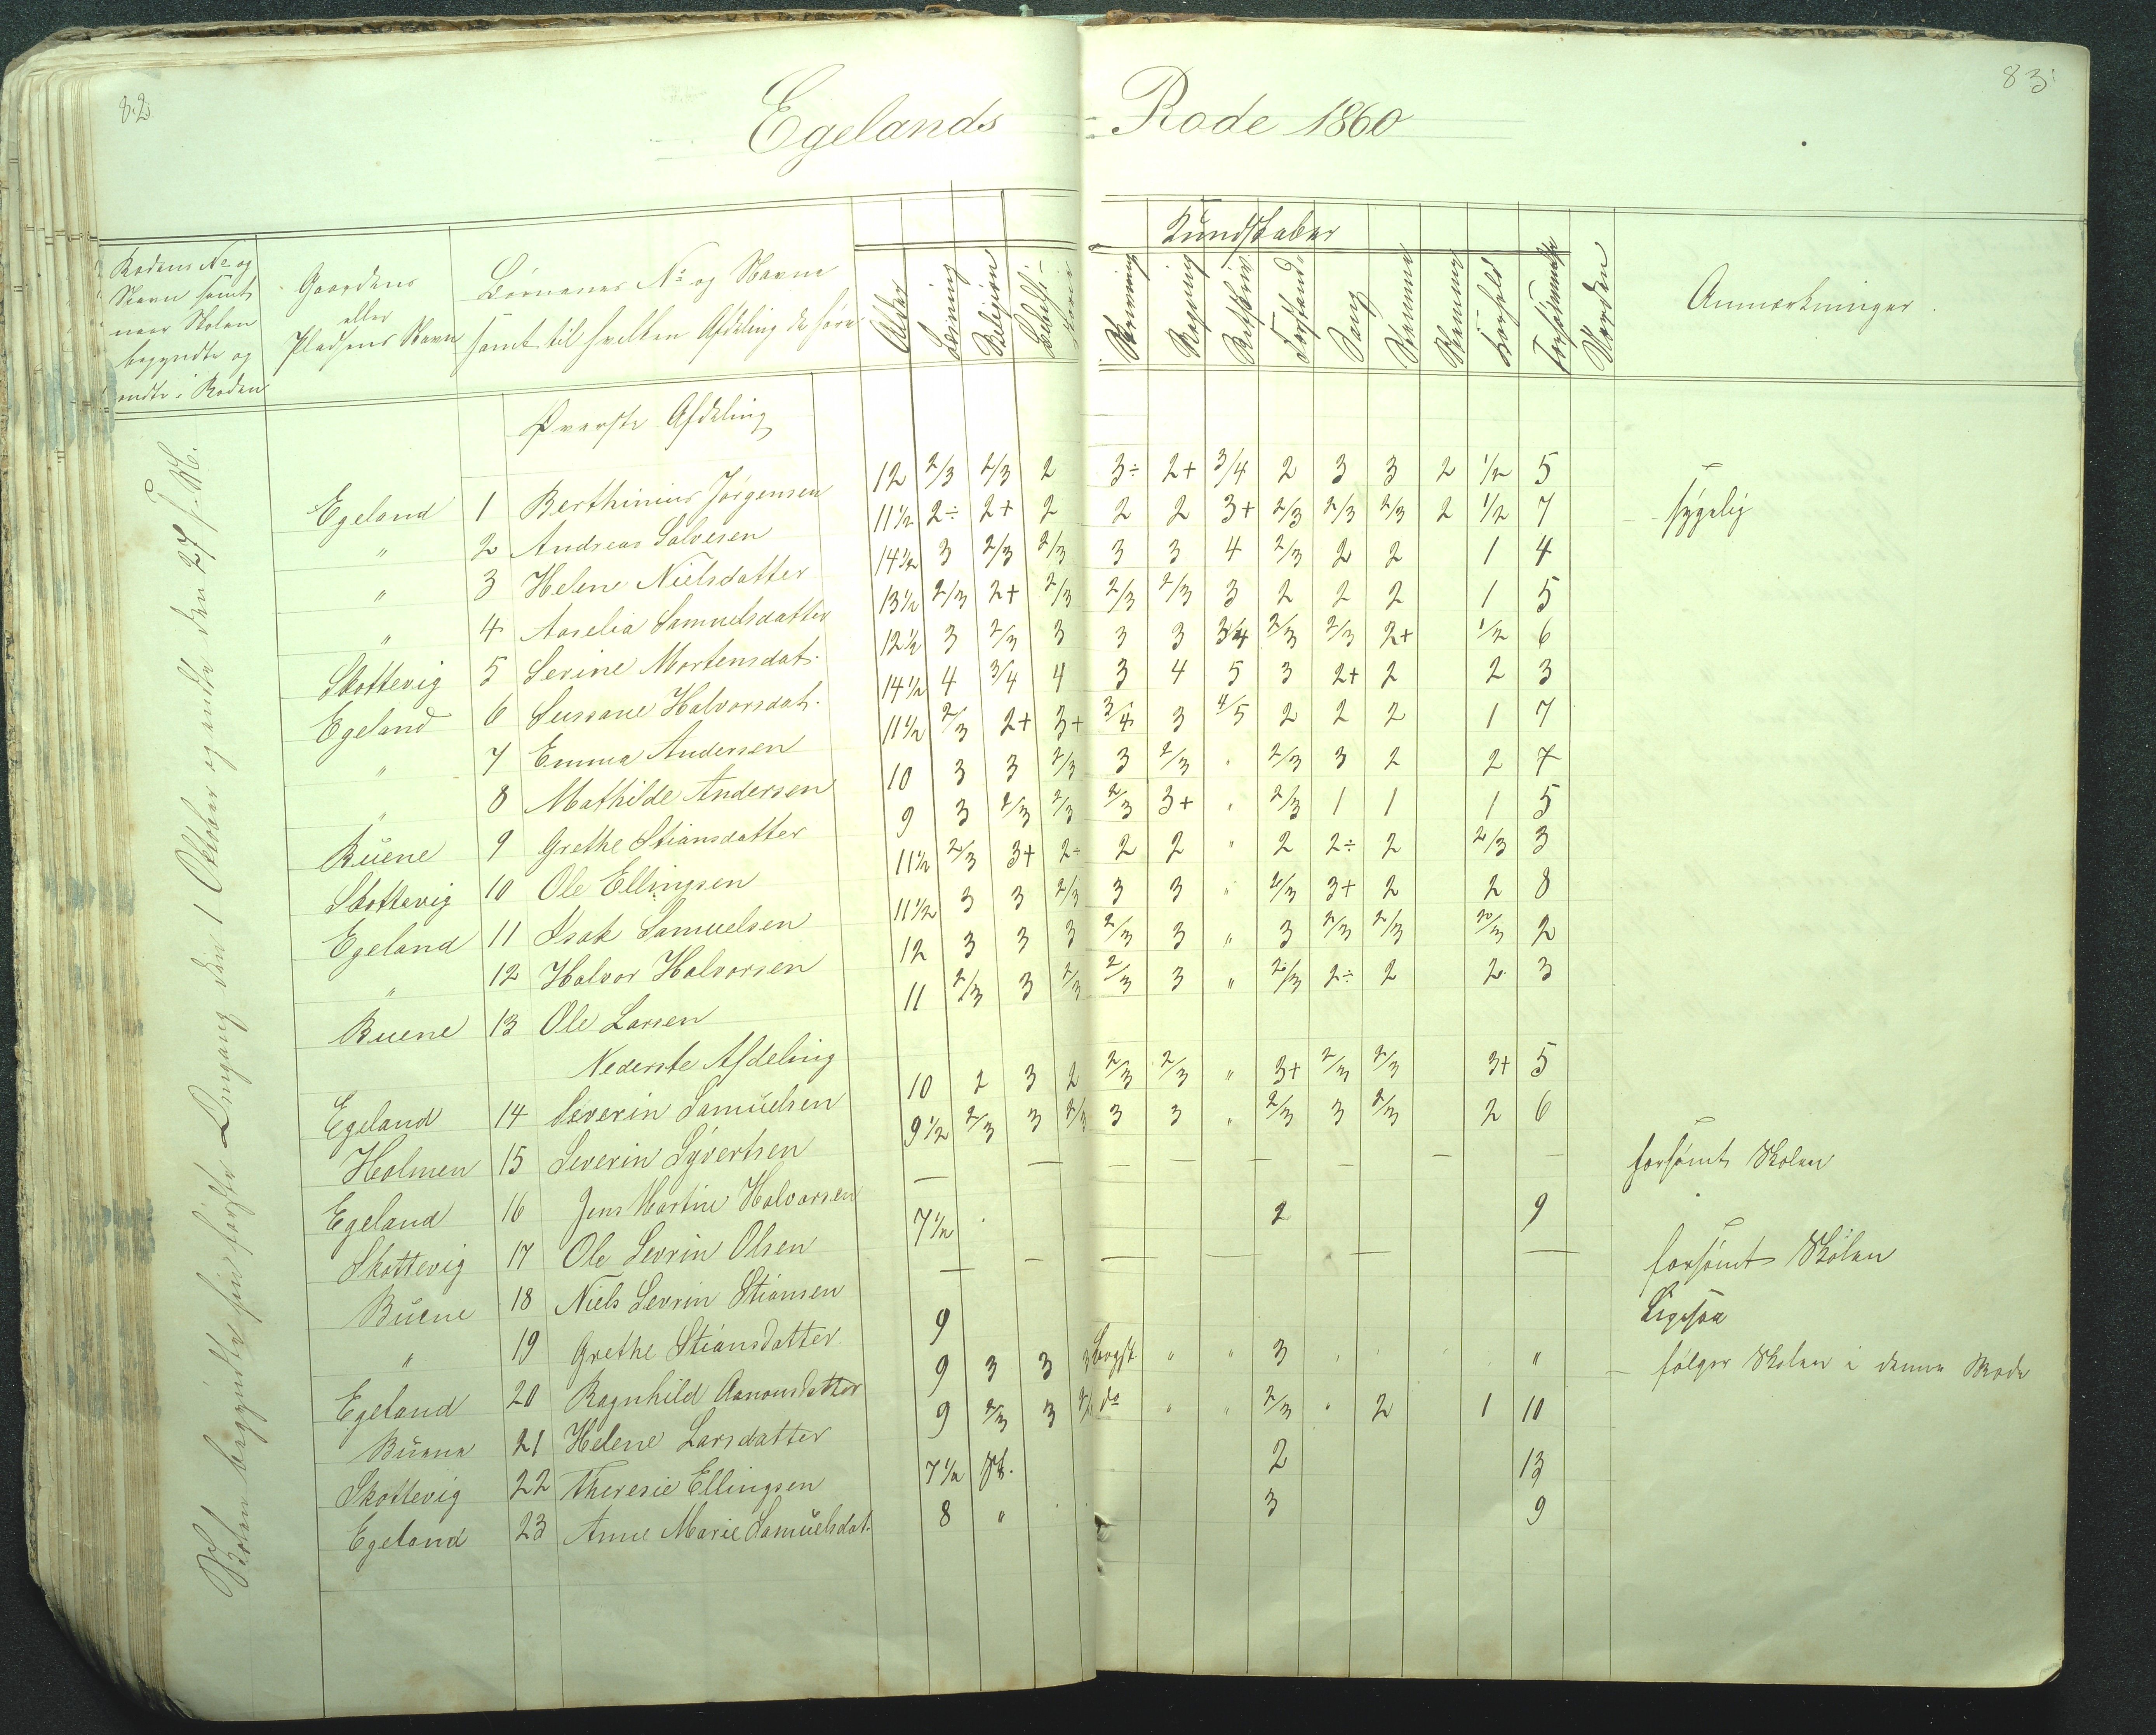 82
83
Egelands Rode 1860
Rodens No og Navn samt naar Skolen begyndte og endte i Roden
Gaardens eller Pladsens Navn
Børnenes No og Navne samt til hvilken Afdeling de hører
Alder
Læsning
Religion
Bibelhistorie
Kundskaber
Skrivning
Regning
Retskriv.
Forstand
Sang
Forhold
Forsømmelse
Anmærkninger
Skolen begyndte sin første Omgang den 1 Oktober og endte den 27 s. M.
Øverste Afdeling
Egeland 1 Berthinius Jørgensen 12 2/3 2/3 2 3÷ 2+ 3/4 2 3 3 2 1/2 5
" 2 Andreas Salvesen 11½ 2÷ 2+ 2 2 2 3+ 2/3 2/3 2/3 2 1/2 7 sygelig
" 3 Helene Nielsdatter 14½ 3 2/3 2/3 3 3 4 2/3 2 2 1 4
" 4 Aorelia Samuelsdatter 13½ 2/3 2+ 2/3 2/3 2/3 3 2 2 2 1 5
Skottevig 5 Serine Mortensdat. 12½ 3 2/3 3 3 3 3/4 2/3 2/3 2+ 1/2 6
Egeland 6 Sussane Halvorsdat. 14½ 4 3/4 4 3 4 5 3 2+ 2 2 3
" 7 Emma Andersen 11½ 2/3 2+ 3+ 3/4 3 4/5 2 2 2 1 7
" 8 Mathilde Andersen 10 3 3 2/3 3 2/3 " 2/3 3 2 2 7
Buene 9 Grethe Stiansdatter 9 3 2/3 2/3 2/3 3+ " 2/3 1 1 1 5
Skottevig 10 Ole Ellingsen 11½ 2/3 3+ 2÷ 2 2 " 2 2÷ 2 2/3 3
Egeland 11 Isak Samuelsen 11½ 3 3 2/3 3 3 " 2/3 3+ 2 2 8
" 12 Halvor Halvorsen 12 3 3 3 2/3 3 " 3 2/3 2/3 2/3 2
Buene 13 Ole Larsen 11 2/3 3 2/3 2/3 3 " 2/3 2÷ 2 2 3
Nederste Afdeling
Egeland 14 Severin Samuelsen 10 2 3 2 2/3 2/3 " 3+ 2/3 2/3 3+ 5
Holmen 15 Severin Syvertsen 9½ 2/3 3 2/3 3 3 " 2/3 3 2/3 2 6
Egeland 16 Jens Martin Halvorsen — — — — — — — — — forsømt Skolen
Skottevig 17 Ole Sevrin Olsen 7½ 2 9
Buene 18 Niels Sevrin Stiansen — — — — — — forsømt Skolen
" 19 Grethe Stiansdatter 9 Ligesaa
Egeland 20 Ragnhild Aanonsdatter 9 3 3 3 bogst " " 3 " følger Skolen i denne Rode
Buene 21 Helene Larsdatter 9 2/3 3 2/3 do " " 2/3 " 2 1 10
Skottevig 22 Theresie Ellingsen 7½ St. 2 13
Egeland 23 Anne Marie Samuelsdat. 8 " 3 9